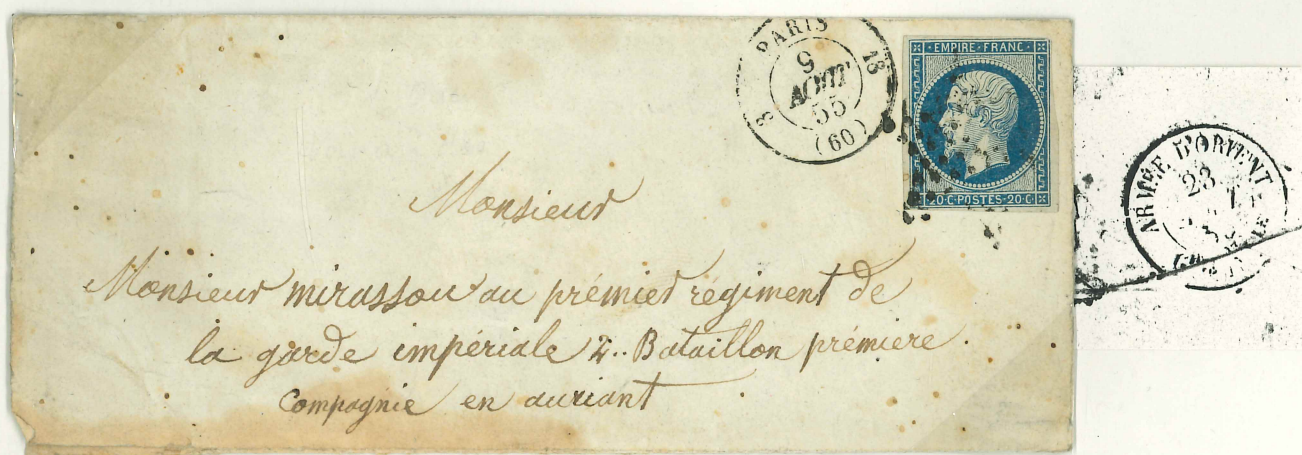 PARIS
9
AOUT
55
(60)
EMPIRE · FRANC ·
20·C·POSTES·20·C·
ARMÉE D'ORIENT
23
Monsieur
Monsieur mirassou au prémier régiment de
la garde impériale 2.. Bataillon prémiere
Compagnie en auriant